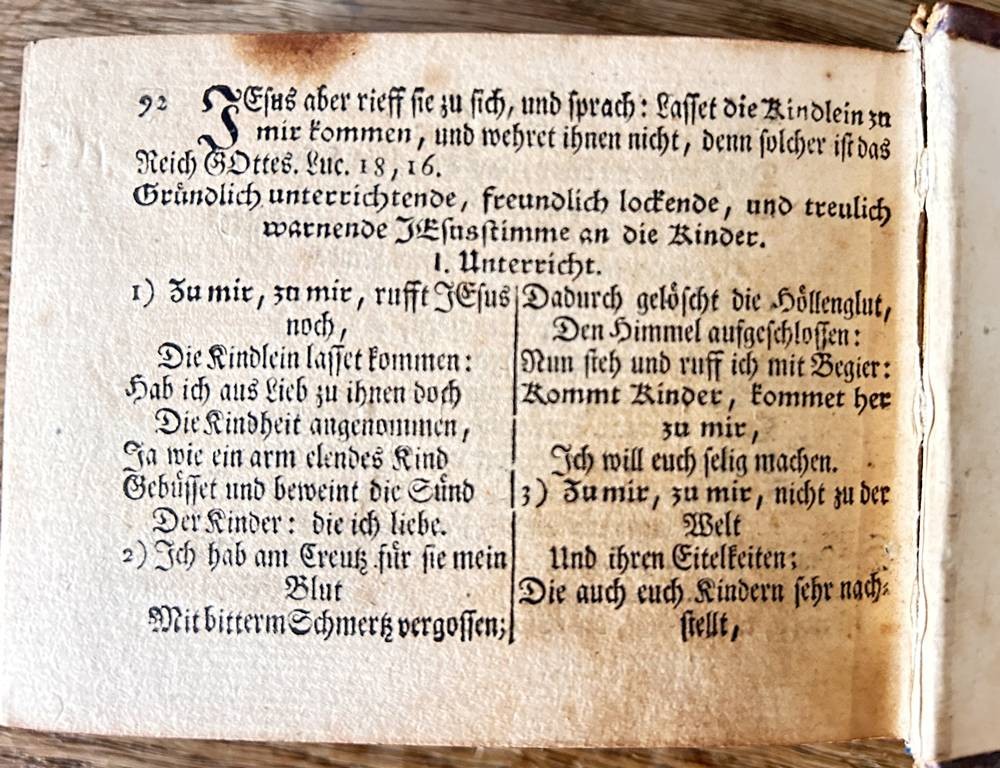 92 JEsus aber rieff sie zu sich, und sprach: Lasset die Kindlein zu
mir kommen, und wehret ihnen nicht, denn solcher ist das
Reich GOttes. Luc. 18, 16.
Gründlich unterrichtende, freundlich lockende, und treulich
warnende JEsusstimme an die Kinder.
I. Unterricht.
1) Zu mir, zu mir, rufft JEsus
noch,
Die Kindlein lasset kommen:
Hab ich aus Lieb zu ihnen doch
Die Kindheit angenommen,
Ja wie ein arm elendes Kind
Gebüsset und beweint die Sünd
Der Kinder: die ich liebe.
2) Ich hab am Creutz für sie mein
Blut
Mit bitterm Schmertz vergossen;
Dadurch gelöscht die Höllenglut,
Den Himmel aufgeschlossen:
Nun steh und ruff ich mit Begier:
Kommt Kinder, kommet her
zu mir,
Ich will euch selig machen.
3) Zu mir, zu mir, nicht zu der
Welt
Und ihren Eitelkeiten;
Die auch euch Kindern sehr nach-
stellt,